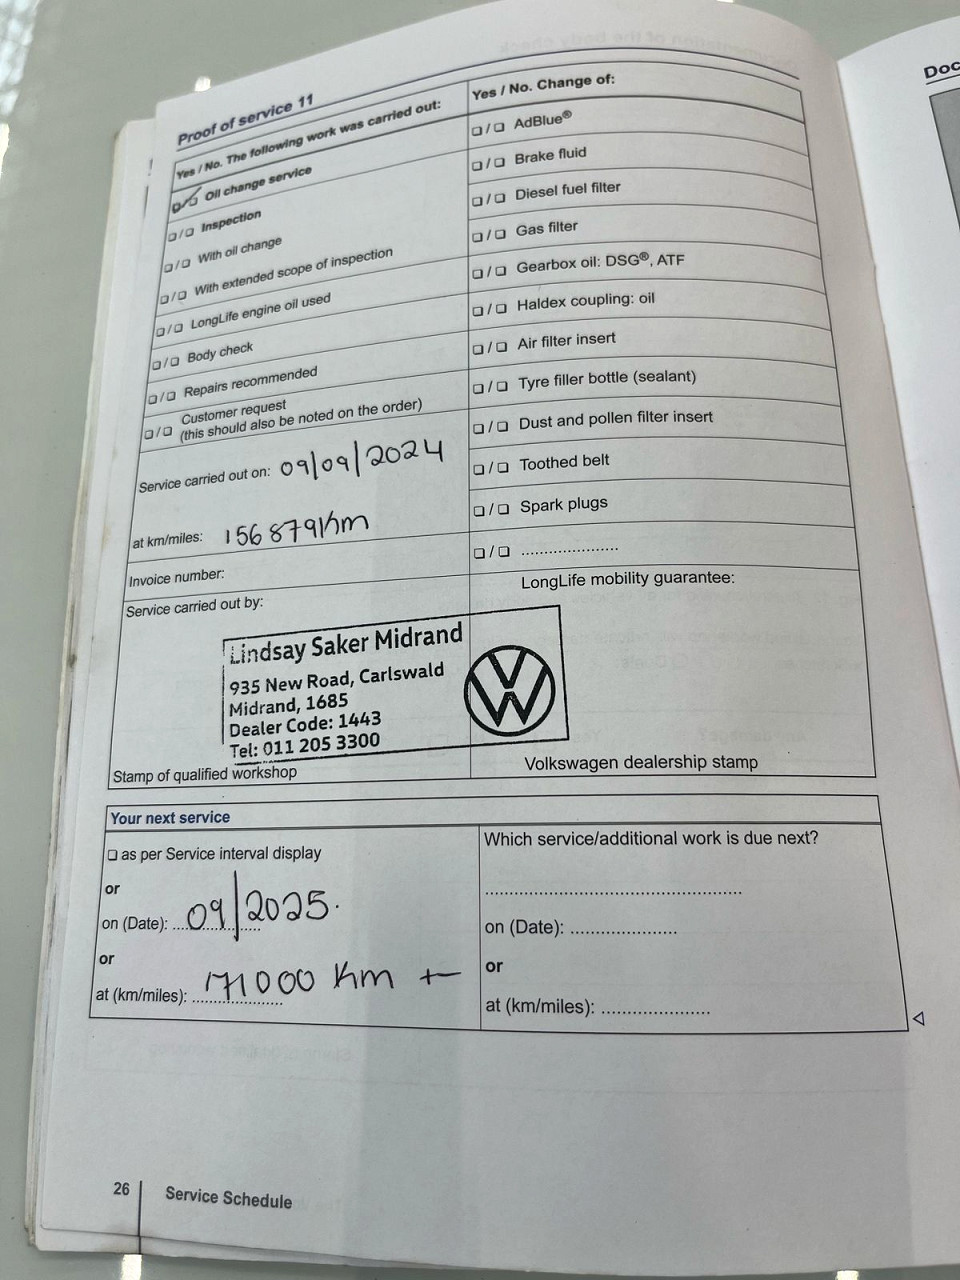 Proof of service 11
Yes / No. The following work was carried out:
☑/☐ Oil change service
☐/☐ Inspection
☐/☐ With oil change
☐/☐ With extended scope of inspection
☐/☐ LongLife engine oil used
☐/☐ Body check
☐/☐ Repairs recommended
☐/☐ Customer request
(this should also be noted on the order)
Service carried out on: 09/09/2024
at km/miles: 156 879 Km
Invoice number:
Service carried out by:
Yes / No. Change of:
☐/☐ AdBlue®
☐/☐ Brake fluid
☐/☐ Diesel fuel filter
☐/☐ Gas filter
☐/☐ Gearbox oil: DSG®, ATF
☐/☐ Haldex coupling: oil
☐/☐ Air filter insert
☐/☐ Tyre filler bottle (sealant)
☐/☐ Dust and pollen filter insert
☐/☐ Toothed belt
☐/☐ Spark plugs
☐/☐ ......................
LongLife mobility guarantee:
Lindsay Saker Midrand
935 New Road, Carlswald
Midrand, 1685
Dealer Code: 1443
Tel: 011 205 3300
VW
Stamp of qualified workshop
Volkswagen dealership stamp
Your next service
☐ as per Service interval display
or
on (Date): 09/2025.
or
at (km/miles): 171000 Km +-
Which service/additional work is due next?
on (Date): ......................
or
at (km/miles): ......................
26
Service Schedule
Doc